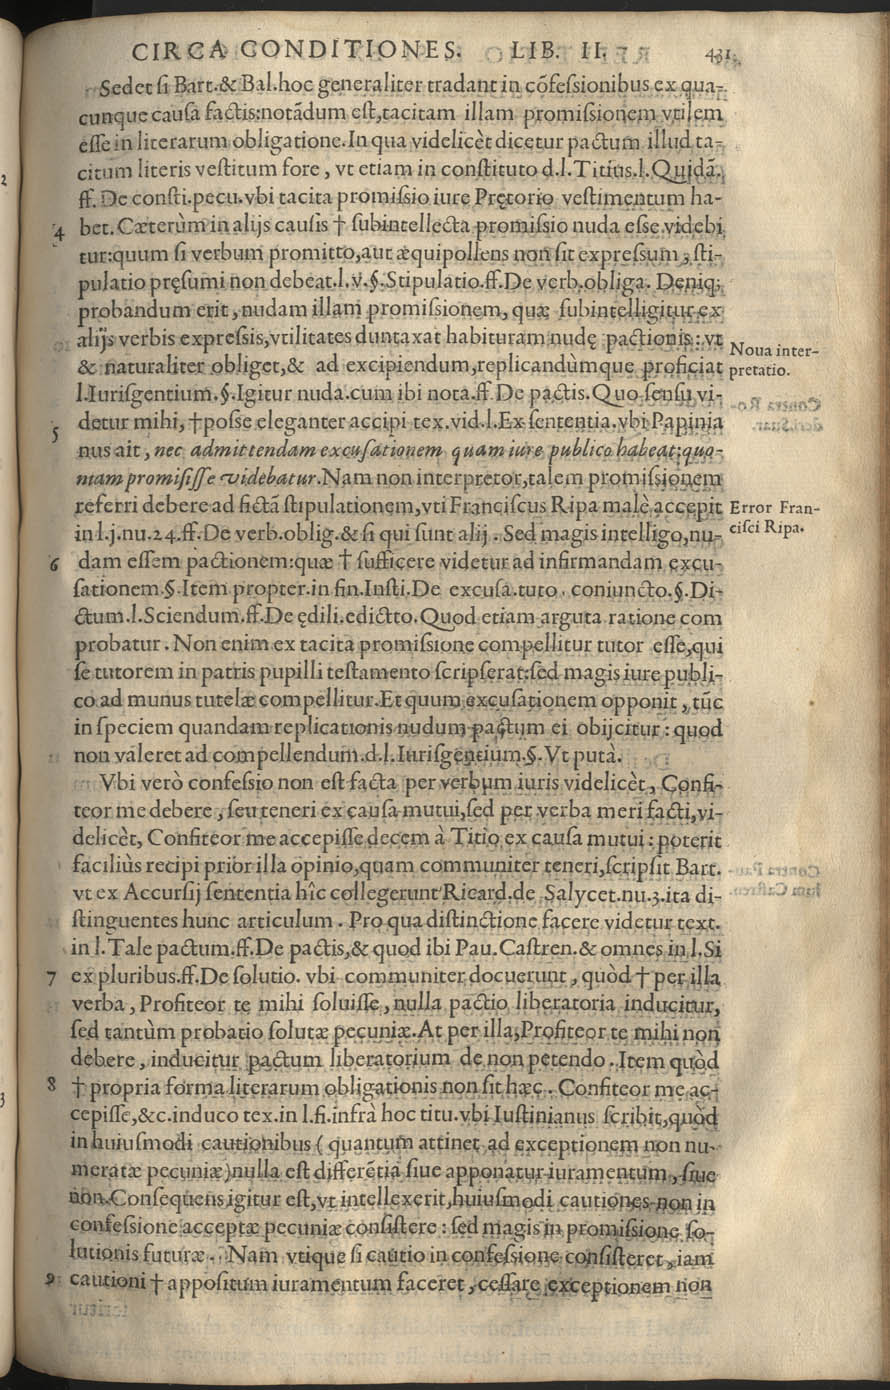 CIRCA CONDITIONES. LIB. II. 431
Sed et ſi Bart.& Bal.hoc generaliter tradant in cõfeſsionibus ex qua-
cunque cauſa factis:notãdum eſt,tacitam illam promiſsionem vtilem
eſſe in literarum obligatione.In qua videlicèt dicetur pactum illud ta-
citum literis veſtitum fore, vt etiam in conſtituto d.l.Titius.l.Quidã.
ff. De conſti.pecu.vbi tacita promiſsio iure Prętorio veſtimentum ha-
4 bet. Cæterùm in alijs cauſis † ſubintellecta promiſsio nuda eſſe videbi
tur:quum ſi verbum promitto,aut æquipollens non ſit expreſsum, ſti-
pulatio pręſumi non debeat.l.v.§.Stipulatio.ff.De verb.obliga. Deniq;
probandum erit, nudam illam promiſsionem, quæ ſubintelligitur ex
alijs verbis expreſsis,vtilitates duntaxat habituram nudę pactionis: vt
Noua inter-
& naturaliter obliget,& ad excipiendum,replicandùmque proficiat
pretatio.
l.Iuriſgentium.§.Igitur nuda.cum ibi nota.ff.De pactis.Quo ſenſu vi-
5 detur mihi, †poſse eleganter accipi tex.vid.l.Ex ſententia.vbi Papinia
nus ait, nec admittendam excuſationem quam iure publico habeat:quo-
niam promiſiſſe videbatur.Nam non interpretor,talem promiſsionem
referri debere ad fictã ſtipulationem,vti Franciſcus Ripa malè accepit
Error Fran-
in l.j.nu.24.ff.De verb.oblig.& ſi qui ſunt alij. Sed magis intelligo,nu-
ciſci Ripa.
6 dam eſſem pactionem:quæ † ſufficere videtur ad infirmandam excu-
ſationem.§.Item propter.in fin.Inſti.De excuſa.tuto. coniuncto.§.Di-
ctum.l.Sciendum.ff.De ędili.edictto.Quod etiam arguta ratione com
probatur. Non enim ex tacita promiſsione compellitur tutor eſſe,qui
ſe tutorem in patris pupilli teſtamento ſcripſerat:ſed magis iure publi-
co ad munus tutelæ compellitur.Et quum excuſationem opponit, tũc
in ſpeciem quandam replicationis nudum pactum ei obijcitur: quod
non valeret ad compellendum.d.l.Iuriſgentium.§.Vt putà.
Vbi verò confeſsio non eſt facta per verbum iuris videlicèt, Confi-
teor me debere, ſeu teneri ex cauſa mutui,ſed per verba meri facti,vi-
delicèt, Confiteor me accepiſſe decem à Titio ex cauſa mutui: poterit
faciliùs recipi prior illa opinio,quam communiter teneri,ſcripſit Bart.
vt ex Accurſij ſententia hîc collegerunt Ricard.de Salycet.nu.3.ita di-
ſtinguentes hunc articulum. Pro qua diſtinctione facere videtur text.
in l.Tale pactum.ff.De pactis,& quod ibi Pau.Caſtren.& omnes in l.Si
7 ex pluribus.ff.De ſolutio. vbi communiter docuerunt, quòd † per illa
verba, Profiteor te mihi ſoluiſſe, nulla pactio liberatoria inducitur,
ſed tantùm probatio ſolutæ pecuniæ.At per illa,Profiteor te mihi non
debere, inducitur pactum liberatorium de non petendo. Item quòd
8 † propria forma literarum obligationis non ſit hæc. Confiteor me ac-
cepiſſe,&c.induco tex.in l.fi.infrà hoc titu.vbi Iuſtinianus ſcribit,quòd
in huiuſmodi cautionibus (quantum attinet ad exceptionem non nu-
meratæ pecuniæ)nulla eſt differẽtia ſiue apponatur iuramentum, ſiue
non.Conſequens igitur eſt,vt intellexerit,huiuſmodi cautiones non in
confeſsione acceptæ pecuniæ conſiſtere: ſed magis in promiſsione ſo-
lutionis futuræ. Nam vtique ſi cautio in confeſsione conſiſteret, iam
9 cautioni † appoſitum iuramentum faceret, ceſſare exceptionem non